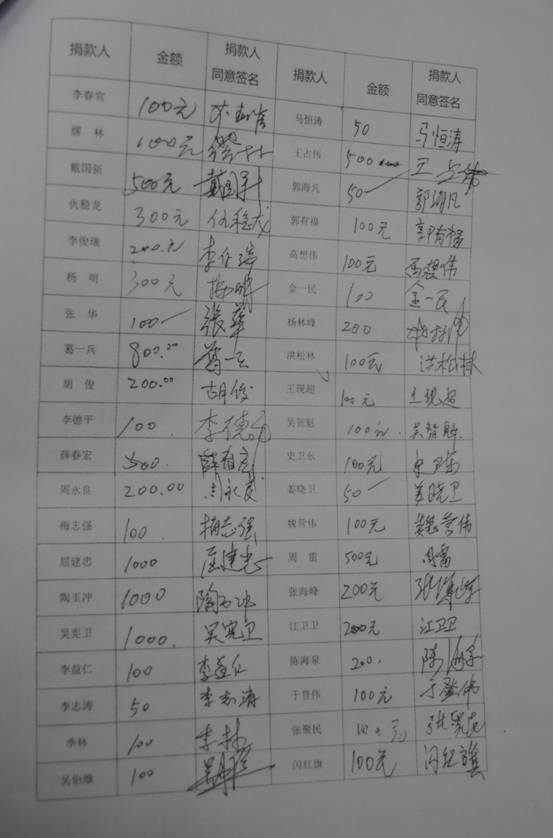 捐款人 金额 捐款人同意签名 捐款人 金额 捐款人同意签名
李春官 100元 马恒涛 50 马恒涛
缪林 1000元 缪林 王占伟 500 王占伟
戴国新 500元 戴国新 郭海凡 50 郭海凡
仇稳龙 300元 仇稳龙 郭有福 100元 郭有福
李俊瑞 200.元 李俊瑞 高想伟 100元 高想伟
杨明 300元 杨明 金一民 100 金一民
张华 100 張華 杨林峰 200
葛一兵 800.00 葛一兵 洪松林 100元 洪松林
胡俊 200.00 胡俊 王现超 100元 王现超
李德平 100 李德平 吴智魁 100元 吴智魁
薛春宏 300. 薛春宏 史卫东 100元 史卫东
周永良 200.00 周永良 姜晓卫 50 姜晓卫
梅志强 100 梅志强 魏营伟 100元 魏营伟
屈建忠 1000 屈建忠 周雷 500元 周雷
陶玉冲 1000 陶玉冲 张海峰 200元 张海峰
吴宪卫 1000. 吴宪卫 江卫卫 200元 江卫卫
李益仁 100 李益仁 陈海泉 200. 陈海泉
李志涛 50 李志涛 于登伟 100元 于登伟
季林 100 季林 张聚民 100元
吴伯维 100 闪红旗 100元 闪红旗